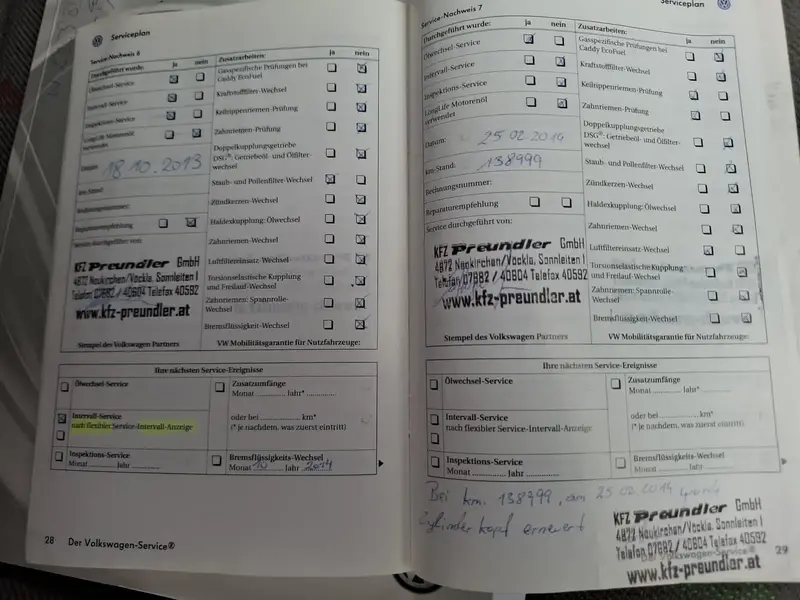 Serviceplan
Service-Nachweis 6
Durchgeführt wurde: ja nein
Ölwechsel-Service
Intervall-Service
Inspektions-Service
LongLife Motorenöl
verwendet
Datum: 18.10.2013
km-Stand:
Rechnungsnummer:
Reparaturempfehlung
Service durchgeführt von:
KFZ Preundler GmbH
4872 Neukirchen/Vöckla, Sonnleiten 1
Telefon 07682 / 40604 Telefax 40592
www.kfz-preundler.at
Stempel des Volkswagen Partners
Zusatzarbeiten: ja nein
Gasspezifische Prüfungen bei
Caddy EcoFuel
Kraftstofffilter-Wechsel
Keilrippenriemen-Prüfung
Zahnriemen-Prüfung
Doppelkupplungsgetriebe
DSG®: Getriebeöl- und Ölfilter-
wechsel
Staub- und Pollenfilter-Wechsel
Zündkerzen-Wechsel
Haldexkupplung: Ölwechsel
Zahnriemen-Wechsel
Luftfiltereinsatz-Wechsel
Torsionselastische Kupplung
und Freilauf-Wechsel
Zahnriemen: Spannrolle-
Wechsel
Bremsflüssigkeit-Wechsel
VW Mobilitätsgarantie für Nutzfahrzeuge:
Ihre nächsten Service-Ereignisse
Ölwechsel-Service
Intervall-Service
nach flexibler Service-Intervall-Anzeige
Inspektions-Service
Monat ........ Jahr ........
Zusatzumfänge
Monat ........ Jahr ........
oder bei ........ km*
(* je nachdem, was zuerst eintritt)
Bremsflüssigkeits-Wechsel
Monat 10 Jahr 2014
28 Der Volkswagen-Service®
Serviceplan
Service-Nachweis 7
Durchgeführt wurde: ja nein
Ölwechsel-Service
Intervall-Service
Inspektions-Service
LongLife Motorenöl
verwendet
Datum: 25 02 2014
km-Stand: 138999
Rechnungsnummer:
Reparaturempfehlung
Service durchgeführt von:
KFZ Preundler GmbH
4872 Neukirchen/Vöckla, Sonnleiten 1
Telefon 07682 / 40604 Telefax 40592
www.kfz-preundler.at
Stempel des Volkswagen Partners
Zusatzarbeiten: ja nein
Gasspezifische Prüfungen bei
Caddy EcoFuel
Kraftstofffilter-Wechsel
Keilrippenriemen-Prüfung
Zahnriemen-Prüfung
Doppelkupplungsgetriebe
DSG®: Getriebeöl- und Ölfilter-
wechsel
Staub- und Pollenfilter-Wechsel
Zündkerzen-Wechsel
Haldexkupplung: Ölwechsel
Zahnriemen-Wechsel
Luftfiltereinsatz-Wechsel
Torsionselastische Kupplung
und Freilauf-Wechsel
Zahnriemen: Spannrolle-
Wechsel
Bremsflüssigkeit-Wechsel
VW Mobilitätsgarantie für Nutzfahrzeuge:
Ihre nächsten Service-Ereignisse
Ölwechsel-Service
Intervall-Service
nach flexibler Service-Intervall-Anzeige
Inspektions-Service
Monat ........ Jahr ........
Zusatzumfänge
Monat ........ Jahr ........
oder bei ........ km*
(* je nachdem, was zuerst eintritt)
Bremsflüssigkeits-Wechsel
Monat ........ Jahr ........
Bei km. 138999, am 25 02 2014 wurde
Zylinderkopf erneuert
KFZ Preundler GmbH
4872 Neukirchen/Vöckla, Sonnleiten 1
Telefon 07682 / 40604 Telefax 40592
www.kfz-preundler.at
Volkswagen-Service® 29